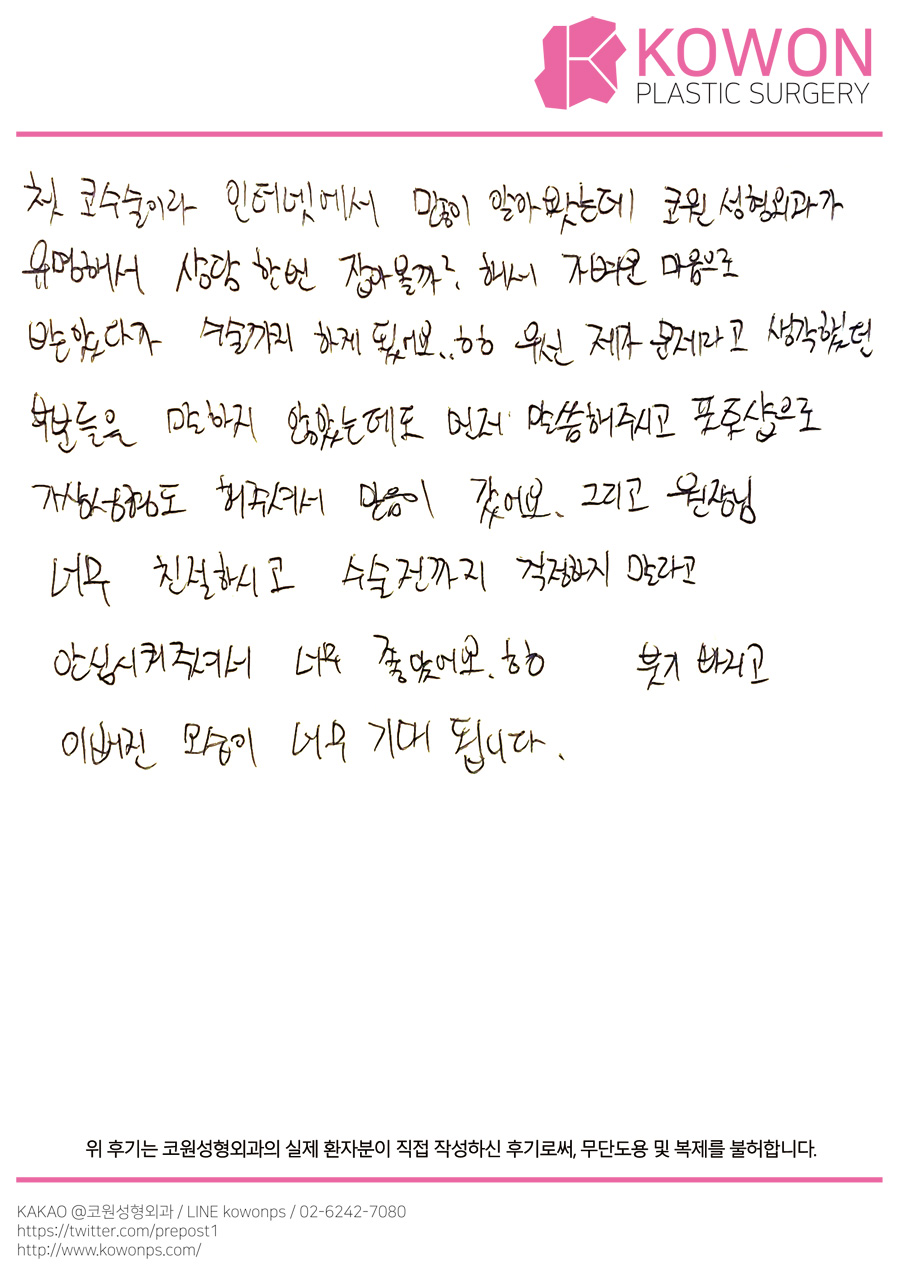 KOWON
PLASTIC SURGERY
첫 코수술이라 인터넷에서 많이 알아봤는데 코원성형외과가
유명해서 상담 한번 잡아볼까? 해서 가벼운 마음으로
받았다가 수술까지 하게 됬어요..ㅎㅎ 우선 제가 문제라고 생각했던
부분들을 말하지 않았는데도 먼저 말씀해주시고 포토샵으로
가상성형도 해주셔서 믿음이 갔어요. 그리고 원장님
너무 친절하시고 수술전까지 걱정하지 말라고
안심시켜주셔서 너무 좋았어요.ㅎㅎ 붓기 빠지고
이뻐진 모습이 너무 기대 됩니다.
위 후기는 코원성형외과의 실제 환자분이 직접 작성하신 후기로써, 무단도용 및 복제를 불허합니다.
KAKAO @코원성형외과 / LINE kowonps / 02-6242-7080
https://twitter.com/prepost1
http://www.kowonps.com/